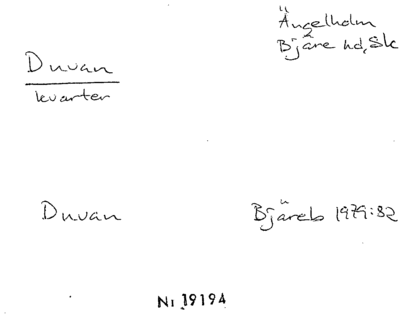 Ängelholm
Bjäre hd, Sk
Duvan
kvarter
Duvan
Bjäreb 1979:82
Nr 19194